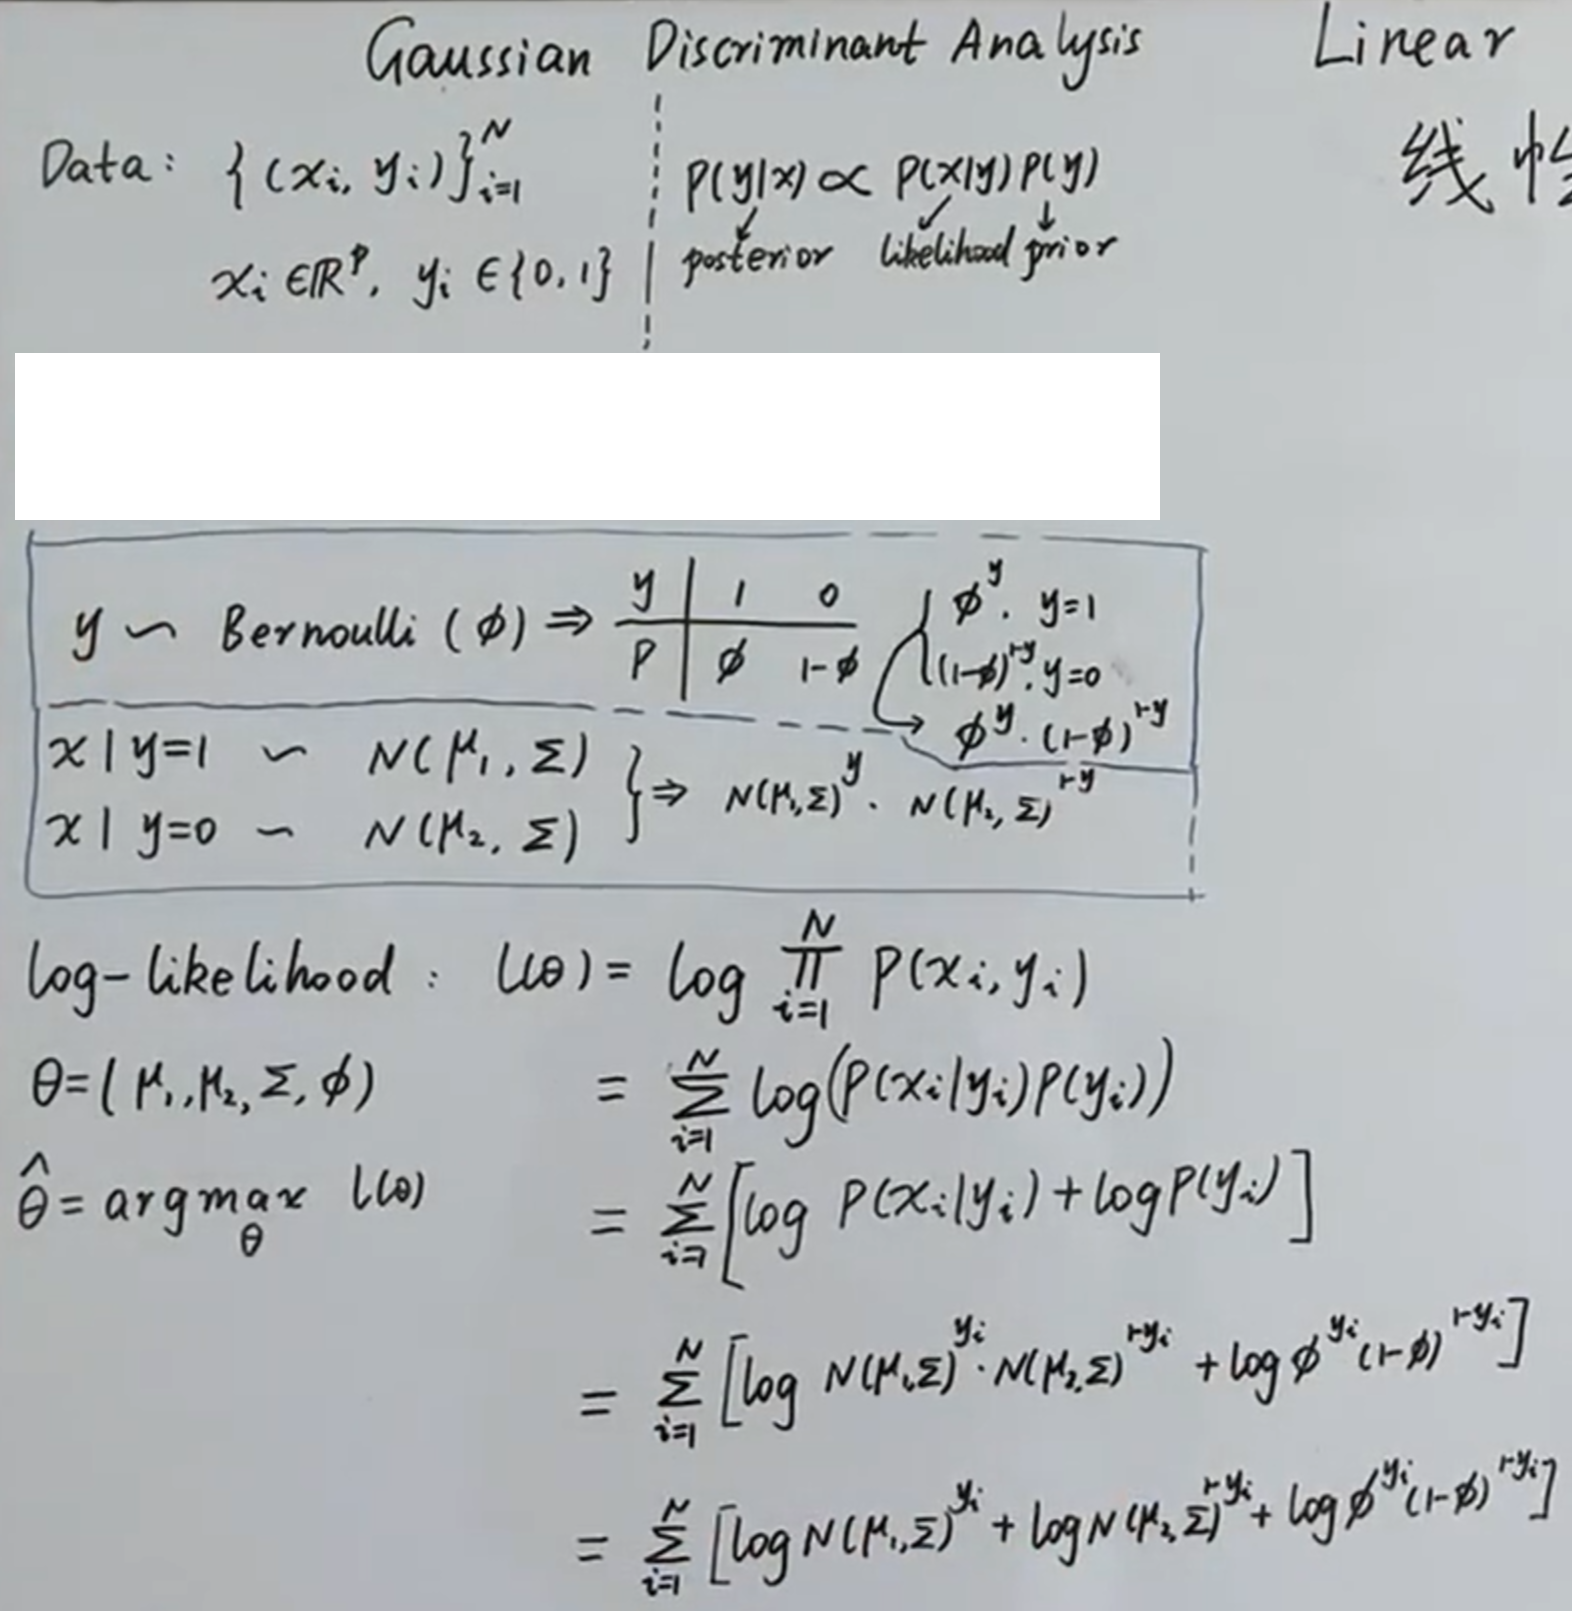 Gaussian Discriminant Analysis Linear
Data: {(xᵢ, yᵢ)}ᵢ₌₁ᴺ
xᵢ ∈ ℝᵖ, yᵢ ∈ {0, 1}
P(y|x) ∝ P(x|y) P(y)
posterior likelihood prior
线性
y ~ Bernoulli (φ) ⇒
y | 1 0
P | φ 1-φ
φ^y, y=1
(1-φ)^{1-y}, y=0
→ φ^y · (1-φ)^{1-y}
x | y=1 ~ N(μ₁, Σ)
x | y=0 ~ N(μ₂, Σ)
} ⇒ N(μ₁,Σ)^y · N(μ₂, Σ)^{1-y}
log-likelihood: l(θ) = log ∏_{i=1}^N P(xᵢ, yᵢ)
θ=(μ₁, μ₂, Σ, φ) = ∑_{i=1}^N log(P(xᵢ|yᵢ)P(yᵢ))
θ̂ = argmax_θ l(θ) = ∑_{i=1}^N [log P(xᵢ|yᵢ) + log P(yᵢ)]
= ∑_{i=1}^N [log N(μ₁,Σ)^{yᵢ} · N(μ₂,Σ)^{1-yᵢ} + log φ^{yᵢ} (1-φ)^{1-yᵢ}]
= ∑_{i=1}^N [log N(μ₁,Σ)^{yᵢ} + log N(μ₂,Σ)^{1-yᵢ} + log φ^{yᵢ} (1-φ)^{1-yᵢ}]